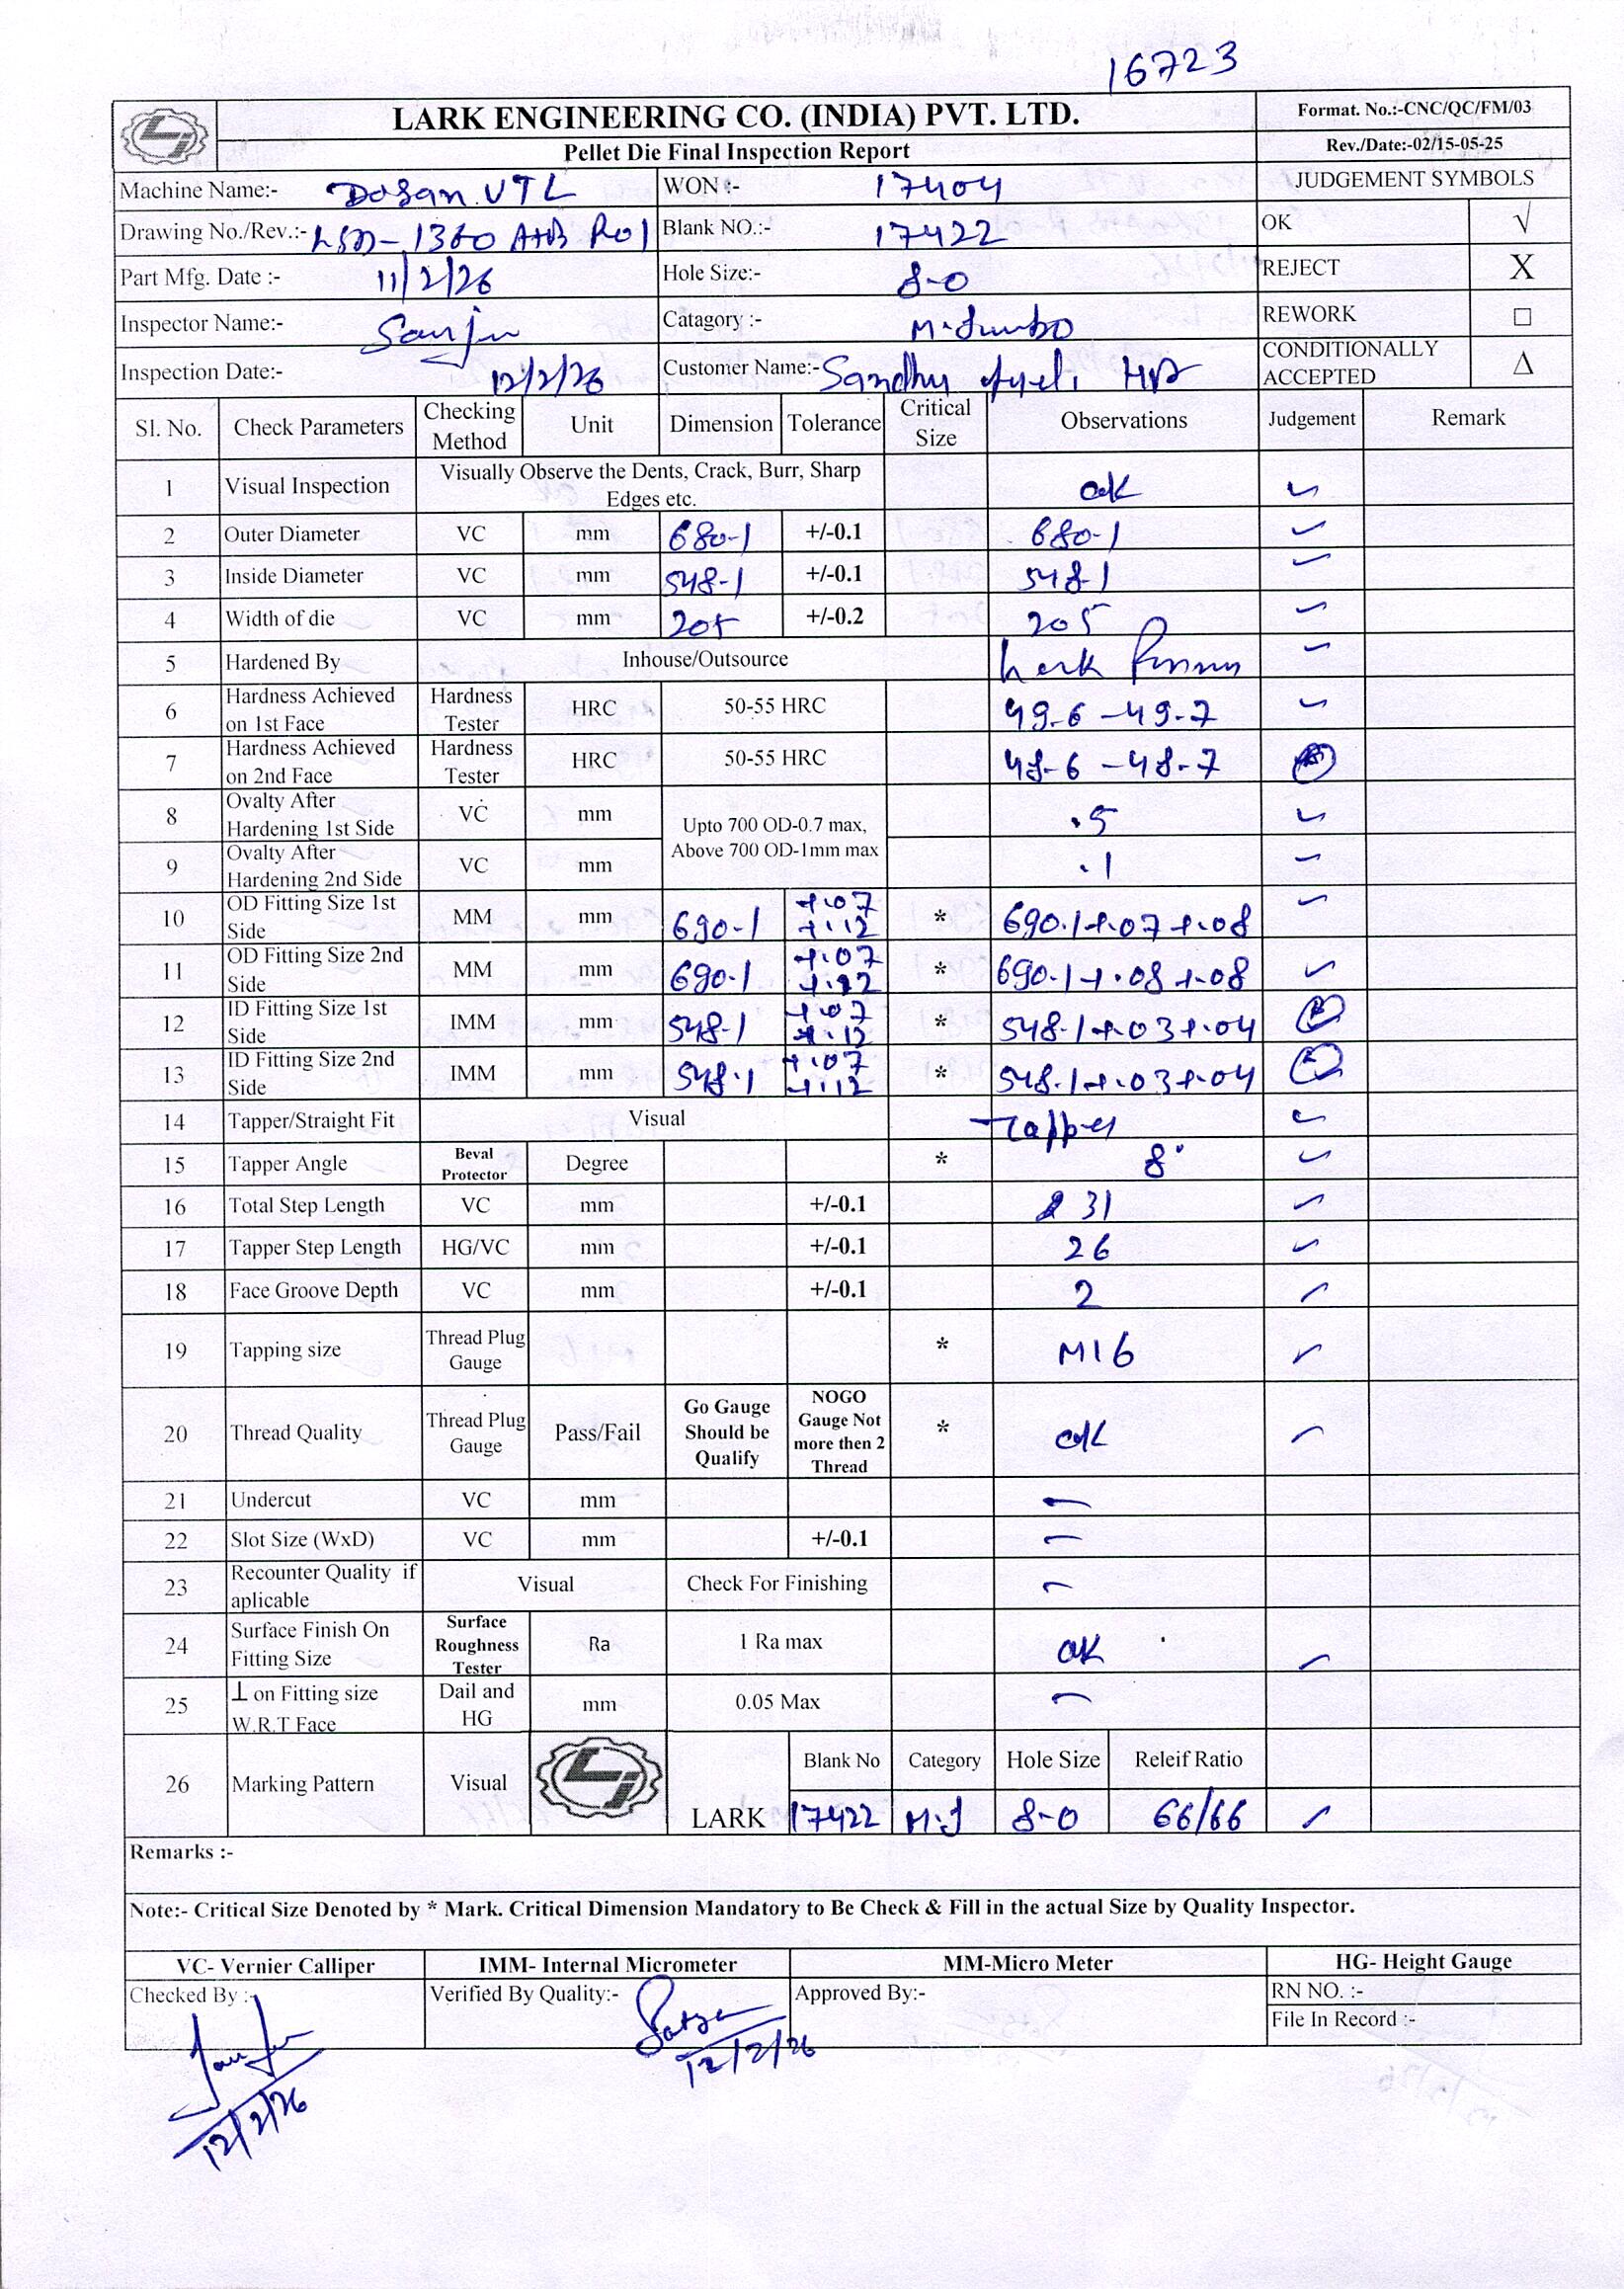 16723
LARK ENGINEERING CO. (INDIA) PVT. LTD.
Format. No.:-CNC/QC/FM/03
Pellet Die Final Inspection Report
Rev./Date:-02/15-05-25
Machine Name:- Dosan VTL WON :- 17404 JUDGEMENT SYMBOLS
Drawing No./Rev.:- LSD-1360 A+B R01 Blank NO.:- 17422 OK √
Part Mfg. Date :- 11/2/26 Hole Size:- 8-0 REJECT X
Inspector Name:- Sanju Catagory :- M.Jumbo REWORK □
Inspection Date:- 12/2/26 Customer Name:- Sandhu CONDITIONALLY ACCEPTED Δ
Sl. No. Check Parameters Checking Method Unit Dimension Tolerance Critical Size Observations Judgement Remark
1 Visual Inspection Visually Observe the Dents, Crack, Burr, Sharp Edges etc. ok ✓
2 Outer Diameter VC mm 680-1 +/-0.1 680-1 ✓
3 Inside Diameter VC mm 548-1 +/-0.1 548-1 ✓
4 Width of die VC mm 205 +/-0.2 205 ✓
5 Hardened By Inhouse/Outsource Lark ✓
6 Hardness Achieved on 1st Face Hardness Tester HRC 50-55 HRC 49-6 -49-7 ✓
7 Hardness Achieved on 2nd Face Hardness Tester HRC 50-55 HRC 48-6 -48-7
8 Ovalty After Hardening 1st Side VC mm Upto 700 OD-0.7 max, Above 700 OD-1mm max .5 ✓
9 Ovalty After Hardening 2nd Side VC mm .1 ✓
10 OD Fitting Size 1st Side MM mm 690-1 +.07 +.12 * 690.1+.07+.08 ✓
11 OD Fitting Size 2nd Side MM mm 690-1 +.07 +.12 * 690.1+.08+.08 ✓
12 ID Fitting Size 1st Side IMM mm 548-1 +.07 +.12 * 548.1+.03+.04
13 ID Fitting Size 2nd Side IMM mm 548.1 +.07 +.12 * 548.1+.03+.04
14 Tapper/Straight Fit Visual Tapper ✓
15 Tapper Angle Beval Protector Degree * 8° ✓
16 Total Step Length VC mm +/-0.1 31 ✓
17 Tapper Step Length HG/VC mm +/-0.1 26 ✓
18 Face Groove Depth VC mm +/-0.1 2 ✓
19 Tapping size Thread Plug Gauge * M16 ✓
20 Thread Quality Thread Plug Gauge Pass/Fail Go Gauge Should be Qualify NOGO Gauge Not more then 2 Thread * ok ✓
21 Undercut VC mm —
22 Slot Size (WxD) VC mm +/-0.1 —
23 Recounter Quality if aplicable Visual Check For Finishing —
24 Surface Finish On Fitting Size Surface Roughness Tester Ra 1 Ra max ok ✓
25 ⊥ on Fitting size W.R.T Face Dail and HG mm 0.05 Max —
26 Marking Pattern Visual LARK Blank No Category Hole Size Releif Ratio
17422 M.J 8-0 66/66 ✓
Remarks :-
Note:- Critical Size Denoted by * Mark. Critical Dimension Mandatory to Be Check & Fill in the actual Size by Quality Inspector.
VC- Vernier Calliper IMM- Internal Micrometer MM-Micro Meter HG- Height Gauge
Checked By :- Verified By Quality:- Approved By:- RN NO. :-
File In Record :-
Sanju 12/2/26
12/2/26